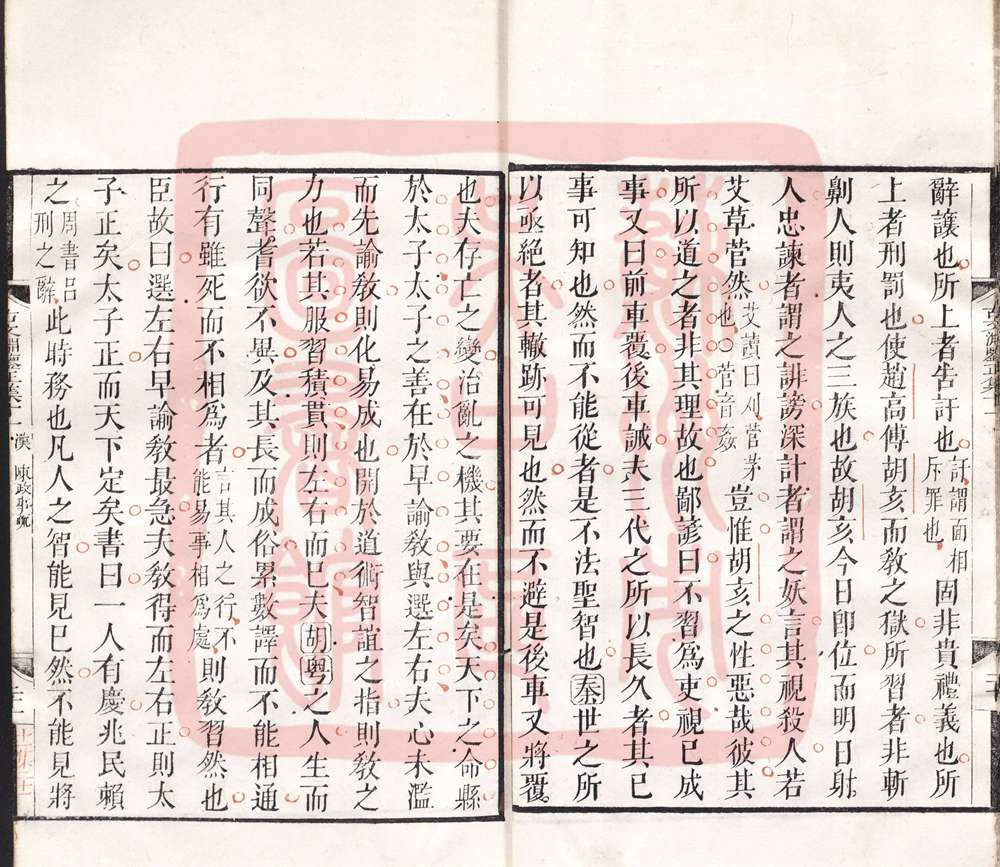 辭讓也所上者告訐也訐謂面相斥罪也固非貴禮義也所
上者刑罰也使趙高傅胡亥而教之獄所習者非斬
劓人則夷人之三族也故胡亥今日卽位而明日射
人忠諫者謂之誹謗深計者謂之妖言其視殺人若
艾草菅然艾讀曰刈菅茅也○菅音姦豈惟胡亥之性惡哉彼其
所以道之者非其理故也鄙諺曰不習爲吏視已成
事又曰前車覆後車誡夫三代之所以長久者其已
事可知也然而不能從者是不法聖智也秦世之所
以亟絕者其轍跡可見也然而不避是後車又將覆
也夫存亡之變治亂之機其要在是矣天下之命縣
於太子太子之善在於早諭教與選左右夫心未濫
而先諭教則化易成也開於道術智誼之指則教之
力也若其服習積貫則左右而已夫胡粵之人生而
同聲耆欲不異及其長而成俗累數譯而不能相通
行有雖死而不相爲者言其人之行不能易事相爲處則教習然也
臣故曰選左右早諭教最急夫教得而左右正則太
子正矣太子正而天下定矣書曰一人有慶兆民賴
之周書呂刑之辭此時務也凡人之智能見已然不能見將
漢 陳政事疏